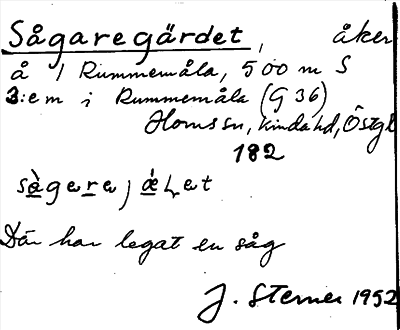 Sågaregärdet, åker
å 1 Rummemåla, 500 m S
3:e m i Rummemåla (G 36)
Horns sn, Kinda hd, Östgl
182
Där har legat en såg
J. Sterner 1952